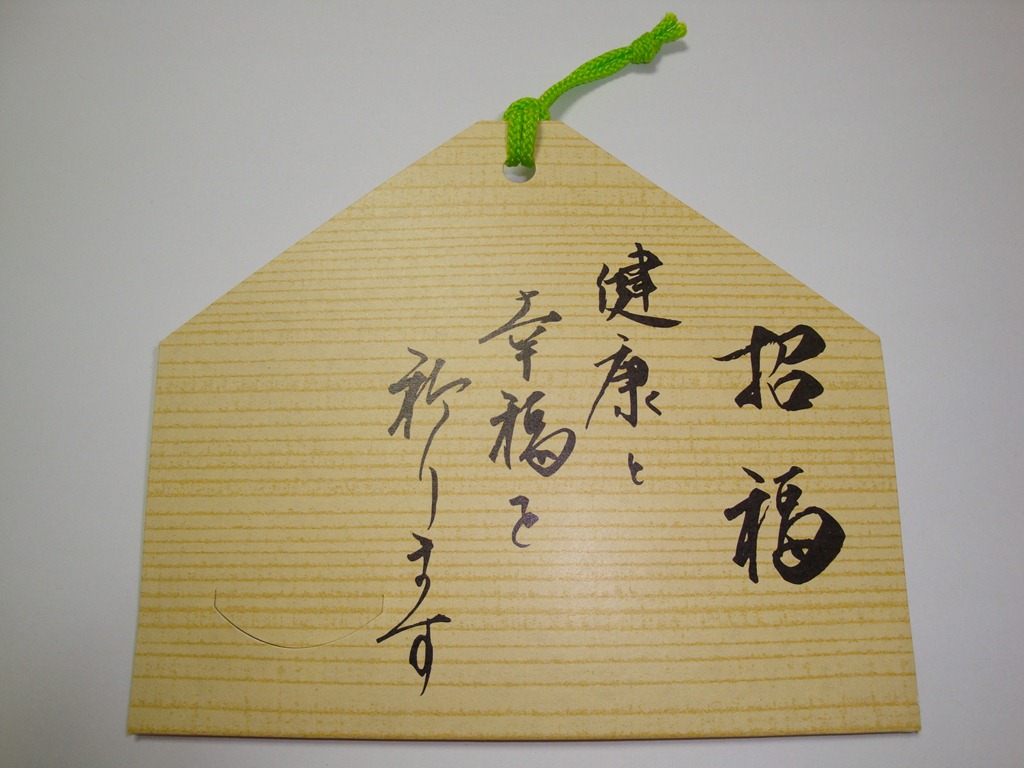 招福
健康と
幸福を
祈ります